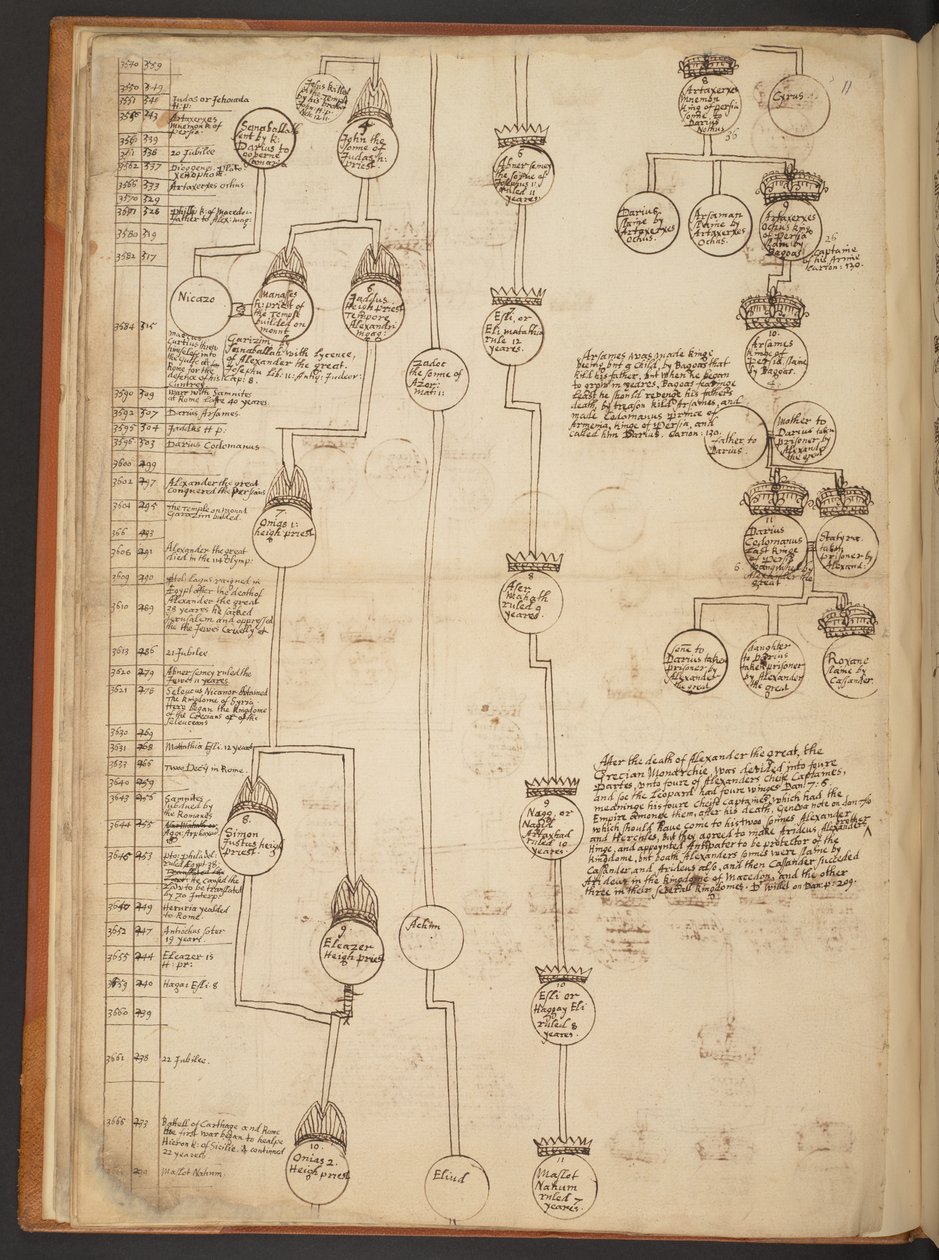 3540 359
3550 349
Judas or Jehoiada
H: p:
Artaxerxes
mnemon k of
persia.
339
338 20 Jubilee
3562 337 Diogenes plato
xenophon
3566 333 Artaxerxes ochus
3570 329
328 Philip k: of Macedo:
father to Alex: mag:
3580 319
3582 317
3584 315
Curtius threw
himselfe into
the gulfe at
Rome for the
defence of his
Cuntrey
3590 309 Warr with Samnites
at Rome 40 yeares.
3592 307 Darius Arsames.
3595 304 Jaddus H p:
3596 303 Darius Codomanus
3600 299
3602 297 Alexander the great
conquered the persians
3604 295 The Temple on mound
Garazim builded.
293
3608 291 Alexander the great
died in the 114 Olymp:
3609 290 Ptol: Lagus raigned in
Egypt after the death of
Alexander the great
38 yeares he sacked
Jerusalem and oppressed
the the Jewes Cruelly
3610 289
3613 286 21 Jubilee
3620 279 Abner semey ruled the
Jewes 11 yeares
3621 278 Seleucus Nicanor obtained
The kingdome of Syria
Here began the kingdome
of the Grecians of the
Seleuceans
3630 269
3631 268 Mattathia Esli. 12 yeares
3633 266 Two Decij in Rome.
3640 259
3643 256 Samnites
subdued by
the Romanes
3644 255
3646 253 Pto: philadel:
ruled Egypt 38:
he caused the
Law to be translated
by 70 Interp:
249 Hetruria yealded
to Rome
3652 247 Antiochus soter
19 yeares.
3655 244 Eleazer is
H: pr:
240 Hagai Esli 8
3660 239
3661 238 22 Jubilee.
3666 233 Battell of Carthage and Rome
the first war began to healpe
Hieron k: of Sicilie, & continued
22 yeares
Maslot Nahum
Senaballat
sent by k:
Darius to
governe
Samaria
Jesus killed
in the Temple
by his brother
John H. p.
4
John the
sonne of
Judas h:
priest
Nicazo
Manasses
h: priest of
the Temple
builded on
mount
Garizim by
Senaballat with lycence,
of Alexander the great.
Josephus Lib: 11: Antiq: Judeor:
Cap: 8.
6
Jaddus.
Heigh priest
Tempore
Alexandri
magg:
7.
Onias 1:
heigh priest
8.
Simon
Justius heigh
priest.
9
Eleazer
Heigh priest
10.
Onias 2.
Heigh priest
Zadot
the sonne of
Azor:
Mat: 1:
Achim
Eliud
6
Abner semei
the sonne of
ruled 11
yeares
7
Esli, or
Eli matathia
rule 12
yeares.
8
Aser
Mahath
ruled 9
yeares.
9
Nagg, or
Nagid
Artaxhad
ruled 10
yeares.
10
Esli or
Haggay Eli
ruled 8
yeares.
11
Maslot
Nahum
ruled 7
yeares.
11
8
Artaxerxes
Mnemon
king of persia
sonne to
Darius
Nothus
36
Cyrus
Darius
slaine by
Artaxerxes
Ochus.
Arsaman
slaine by
Artaxerxes
Ochus.
9
Artaxerxes
Ochus king
of Persia
slain by
Bagoas
26
Captaine
of his Armie
Carion: 130.
10.
Arsames
kinge of
Persia, slaine
by Bagoas.
4.
Arsames was made kinge
being but a child, by Bagoas that
kild his father, but when he began
to grow in yeares, Bagoas fearinge
least he should revenge his fathers
death, by treason kild Arsames, and
made Codomanus prince of
Armenia, kinge of Persia, and
called him Darius. Carion: 130.
father to
Darius.
Mother to
Darius taken
prisoner by
Alexander
the great
11
Darius
Codomanus
last kinge
of Persia
vanquished by
Alexander the
great
6
Statyra
taken
prisoner by
Alexand:
sonne to
Darius taken
prisoner by
Alexander
the great
daughter
to Darius
taken prisoner
by Alexander
the great
Roxane
slaine by
Cassander.
After the death of Alexander the great, the
Grecian Monarchie was devided into foure
Partes, unto foure of Alexanders cheife Captaines,
and soe the Leopard had foure winges Dan: 7: 6
meaninge his foure cheife Captaines, which had the
Empire amonge them, after his death, Geneva note on dan: 7:6
which should have come to his two sonnes Alexander
and Hercules, but they agreed to make Arideus Alexanders brother
kinge, and appoynted Antipater to be protector of the
kingdome, but both Alexanders sonnes were slaine by
Cassander and Arideus also, and then Cassander succeded
Arideus in the kingdome of Macedon, and the other
three in their severall kingdomes. D Willet on Dan: p: 209.